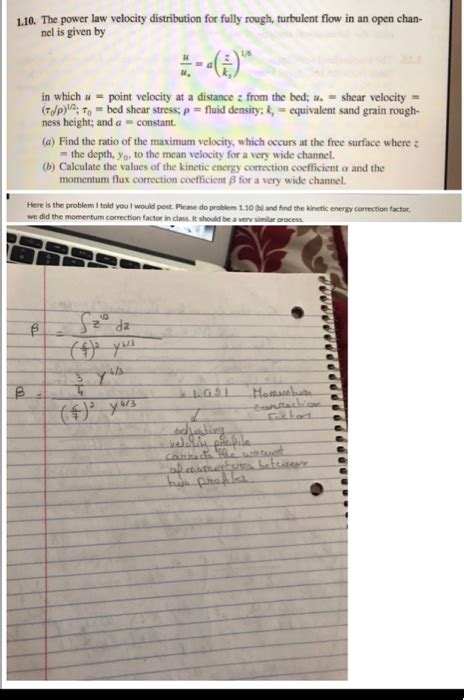 1.10. The power law velocity distribution for fully rough, turbulent flow in an open chan-
nel is given by
u/u* = a(z/ks)^1/6
in which u = point velocity at a distance z from the bed; u* = shear velocity =
(τ0/ρ)^1/2; τ0 = bed shear stress; ρ = fluid density; ks = equivalent sand grain rough-
ness height; and a = constant.
(a) Find the ratio of the maximum velocity, which occurs at the free surface where z
= the depth, y0, to the mean velocity for a very wide channel.
(b) Calculate the values of the kinetic energy correction coefficient α and the
momentum flux correction coefficient β for a very wide channel.
Here is the problem I told you I would post. Please do problem 1.10 (b) and find the kinetic energy correction factor,
we did the momentum correction factor in class. It should be a very similar process.
β = ∫z^1/3 dz
(6/7)² y^4/3
3/4 y^4/3
β = = 1.021 Momentum
(6/7)² y^4/3 correction
factor
velocity profile
corrects the amount
of momentum between
two profiles